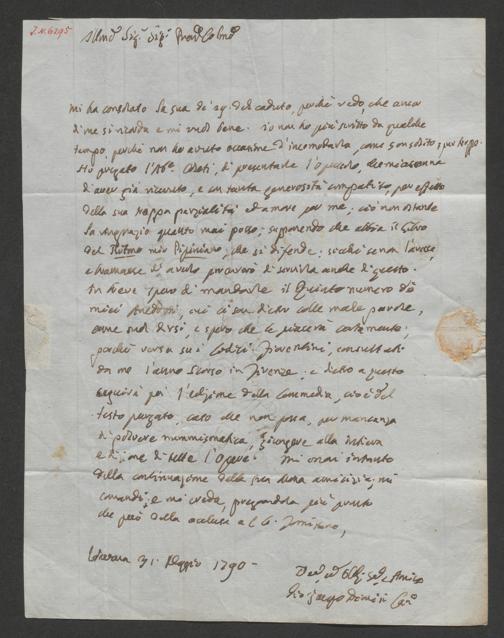 J.N. 6295
Mi ha consolato la sua de' 29. del caduto, perchè vedo, che ancor
di me si ricorda e mi vuol bene. io non ho più scritto da qualche
tempo, perchè non ho avuto occasione d'incomodarla, come son solito; pur troppo.
Ho pregato l'Ab.e di presentarle l'opuscolo, che mi accenna
d'aver già ricevuto, e con tanta generosità compatito, per effetto
della sua troppa parzialità ed amore per me; ciò non ostante
la ringrazio quanto mai posso; supponendo che abbia il libro
del Ritmo mio Pipiniano, che si difende; se chè se non l'avesse,
e bramasse d'averlo procurerò di servirla anche di questo.
In breve spero di mandarle il Quinto numero de'
miei Aneddoti, cui ci son dietro colle mole parole,
come suol dirsi, e spero che le piacerà certamente;
perchè versa su i Codici Fiorentini, consultati
da me l'anno scorso in Firenze: e dietro a questo
seguirà poi l'edizione della Commedia, cioè del
testo purgato, caso che non possa, per mancanza
di polvere nummismatica, giungere alla intiera
edizione di tutte l'Opere. Mi onori intanto
della continuazione della sua cara amicizia; mi
comandi; e mi creda, pregandola
che però della
Verona 31. Maggio 1790.
Gio: Jacopo Dionisi Can.